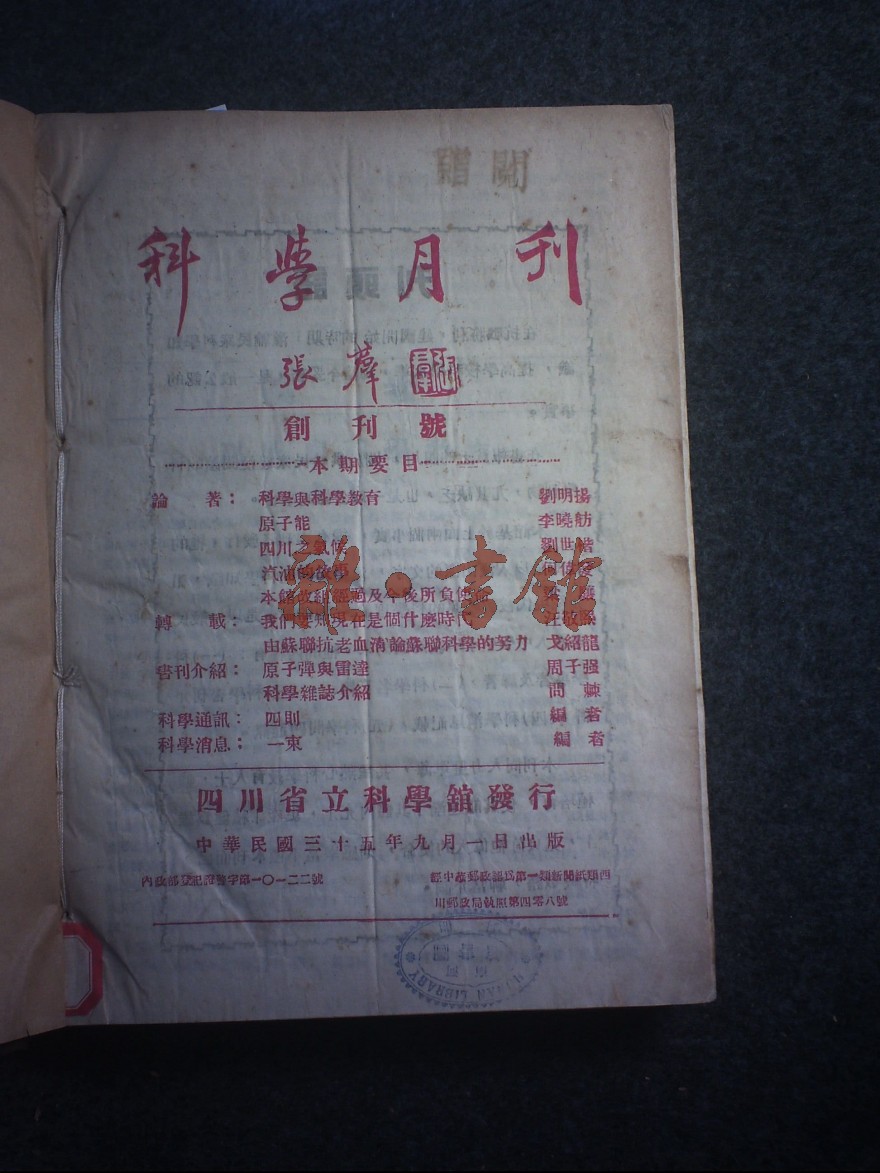 科學月刊
張羣
創刊號
本期要目
論著：科學與科學教育 劉明揚
原子能 李曉舫
四川之氣候 劉世楷
汽油的故事
本館改組經過及今後所負使命
轉載：我們要知現在是個什麼時代 汪敬熙
由蘇聯抗老血清論蘇聯科學的努力 戈紹龍
書刊介紹：原子彈與雷達 周子强
科學雜誌介紹 問棘
科學通訊：四則 編者
科學消息：一束 編者
四川省立科學舘發行
中華民國三十五年九月一日出版
內政部登記證警字第一〇一二二號
經中華郵政認爲第一類新聞紙類西
川郵政局執照第四零八號
雜·書館
LIBRARY